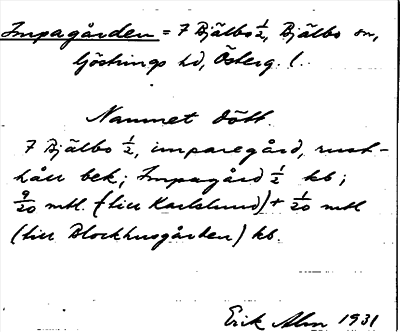 Impagården = 7 Bjälbo ½, Bjälbo sn,
Göstrings hd, Österg. l.
Namnet dött.
7 Bjälbo ½, imparegård, rust-
håll bek; Impagård ½ kb;
9/20 mtl. (till Karlslund) + 1/20 mtl
(till Blockhusgården) kb.
Erik Alm 1931